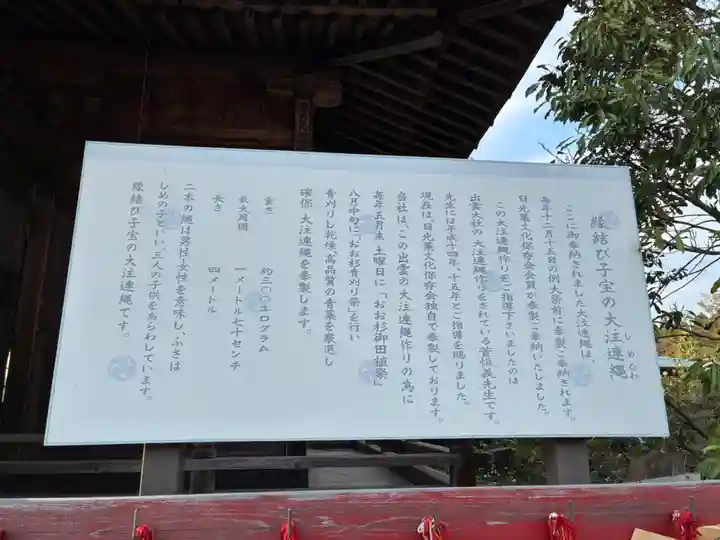 縁結び子宝の大注連縄
しめなわ
ここに御奉納されました大注連縄は、
毎年十二月十五日の例大祭前に奉製ご奉納されます。
日光藁文化保存会会員が奉製ご奉納いたしました。
この大注連縄作りをご指導下さいましたのは
出雲大社の大注連縄作りをされている菅恒義先生です。
先生には平成十四年、十五年とご指導を賜りました。
現在は、日光藁文化保存会独自で奉製しております。
当社は、この出雲の大注連縄作りの為に
毎年五月末土曜日に「おお杉御田植祭」
八月中旬に「おお杉青刈り祭」を行い
青刈りし乾燥、高品質の青藁を厳選し
確保、大注連縄を奉製します。
重さ 約三〇〇キログラム
最大周囲 一メートル七十センチ
長さ 四メートル
二本の縄は男性・女性を意味し、ふさは
しめの子といい、三人の子供をあらわしています。
縁結び子宝の大注連縄です。